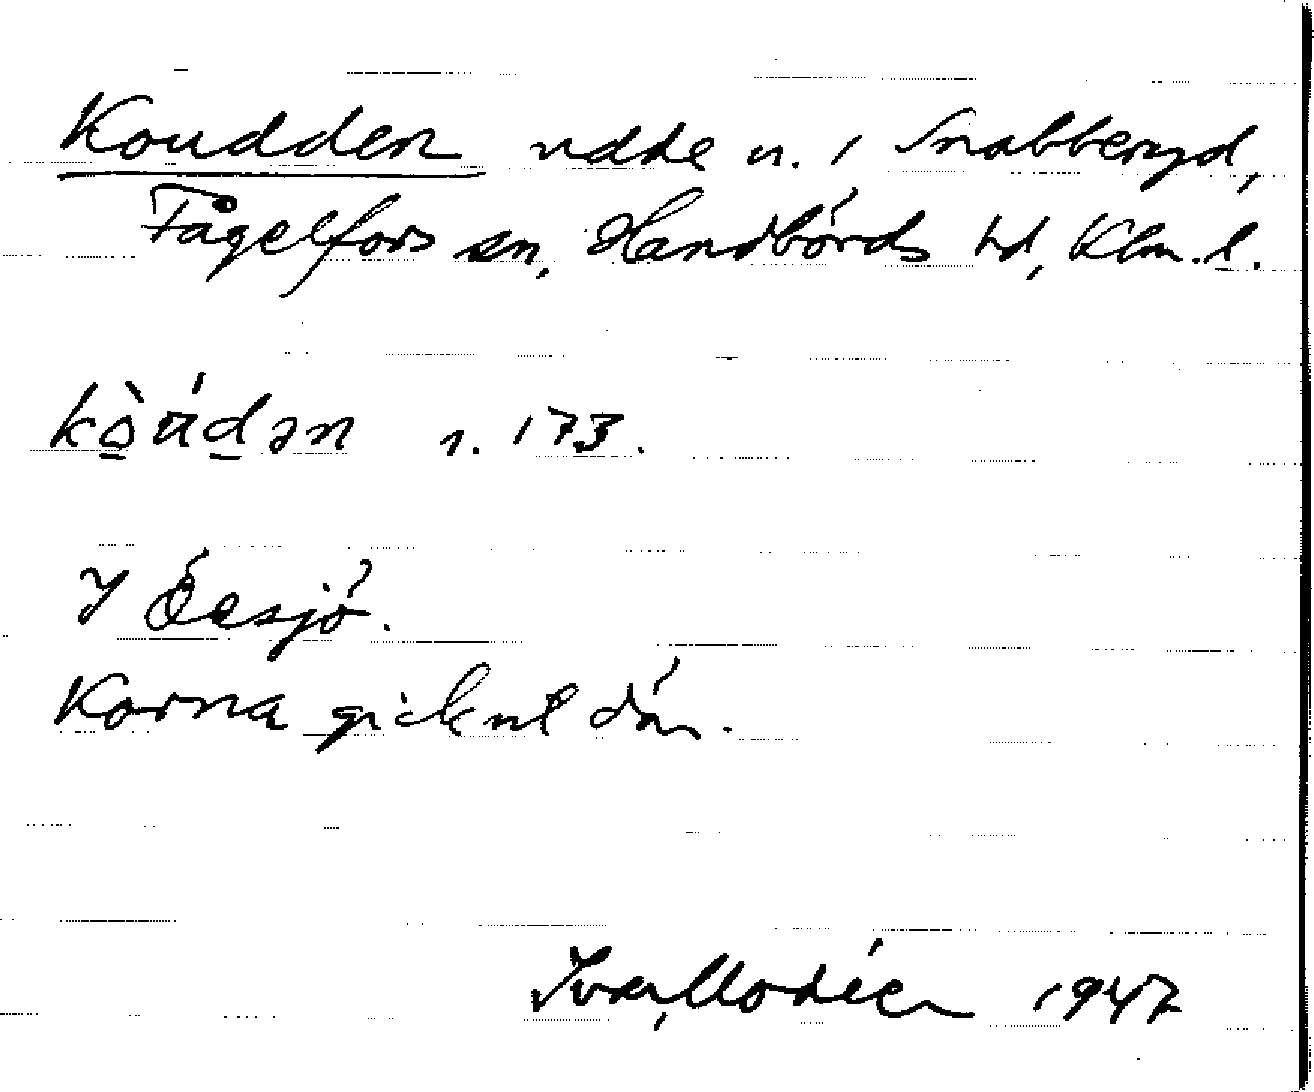 Koudden udde n. i Snabberyd,
Fågelfors sn, Handbörds hd, Klm. l.
kòu̍dən s. 173.
I Öesjö.
Korna gick ut där.
Ivar Modéer 1947